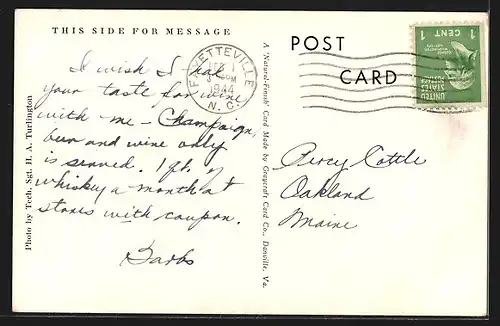 THIS SIDE FOR MESSAGE
I wish I had
your taste for wine
with me - Champaign
beer and wine only
is served. 1 qt. of
whiskey a month at
stores with coupon.
Garbs
Photo by Tech. Sgt. H. A. Turlington
A "Natural-Finish" Card Made by Graycraft Card Co., Danville, Va.
FAYETTEVILLE
FEB
PM
1944
N.C.
POST
CARD
UNITED
STATES
POSTAGE
1 CENT 1
Percy Cottle
Oakland
Maine